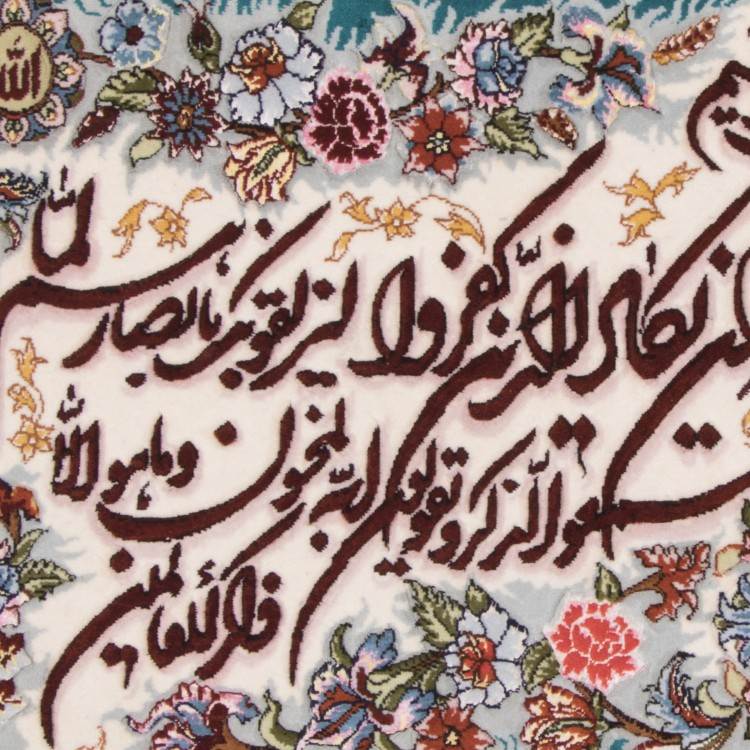 الله
وان یکاد الذین کفروا لیزلقونک بابصارهم لما
سمعوا الذکر و یقولون انه لمجنون وما هو الا
ذکر للعالمین